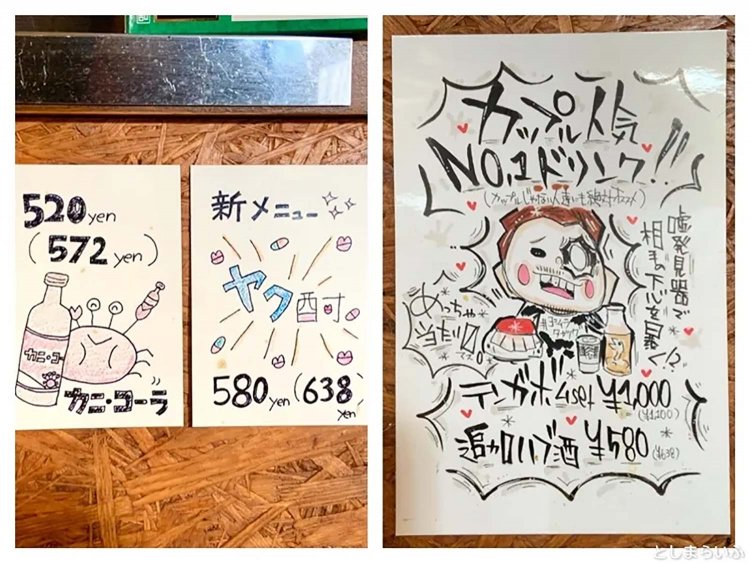 520yen
(572yen)
カニ・コーラ
カニ・コーラ
新メニュー
ヤク酎
580yen(638yen)
カップル人気
NO,1ドリンク!!
(カップルじゃない人達にも絶対オススメ)
嘘発見器で
相手の下心を暴く!?
めっちゃ
当たる。
テンガボムset ¥1,000
(¥1,100)
追加ハブ酒 ¥580
(¥638)
としまらいふ